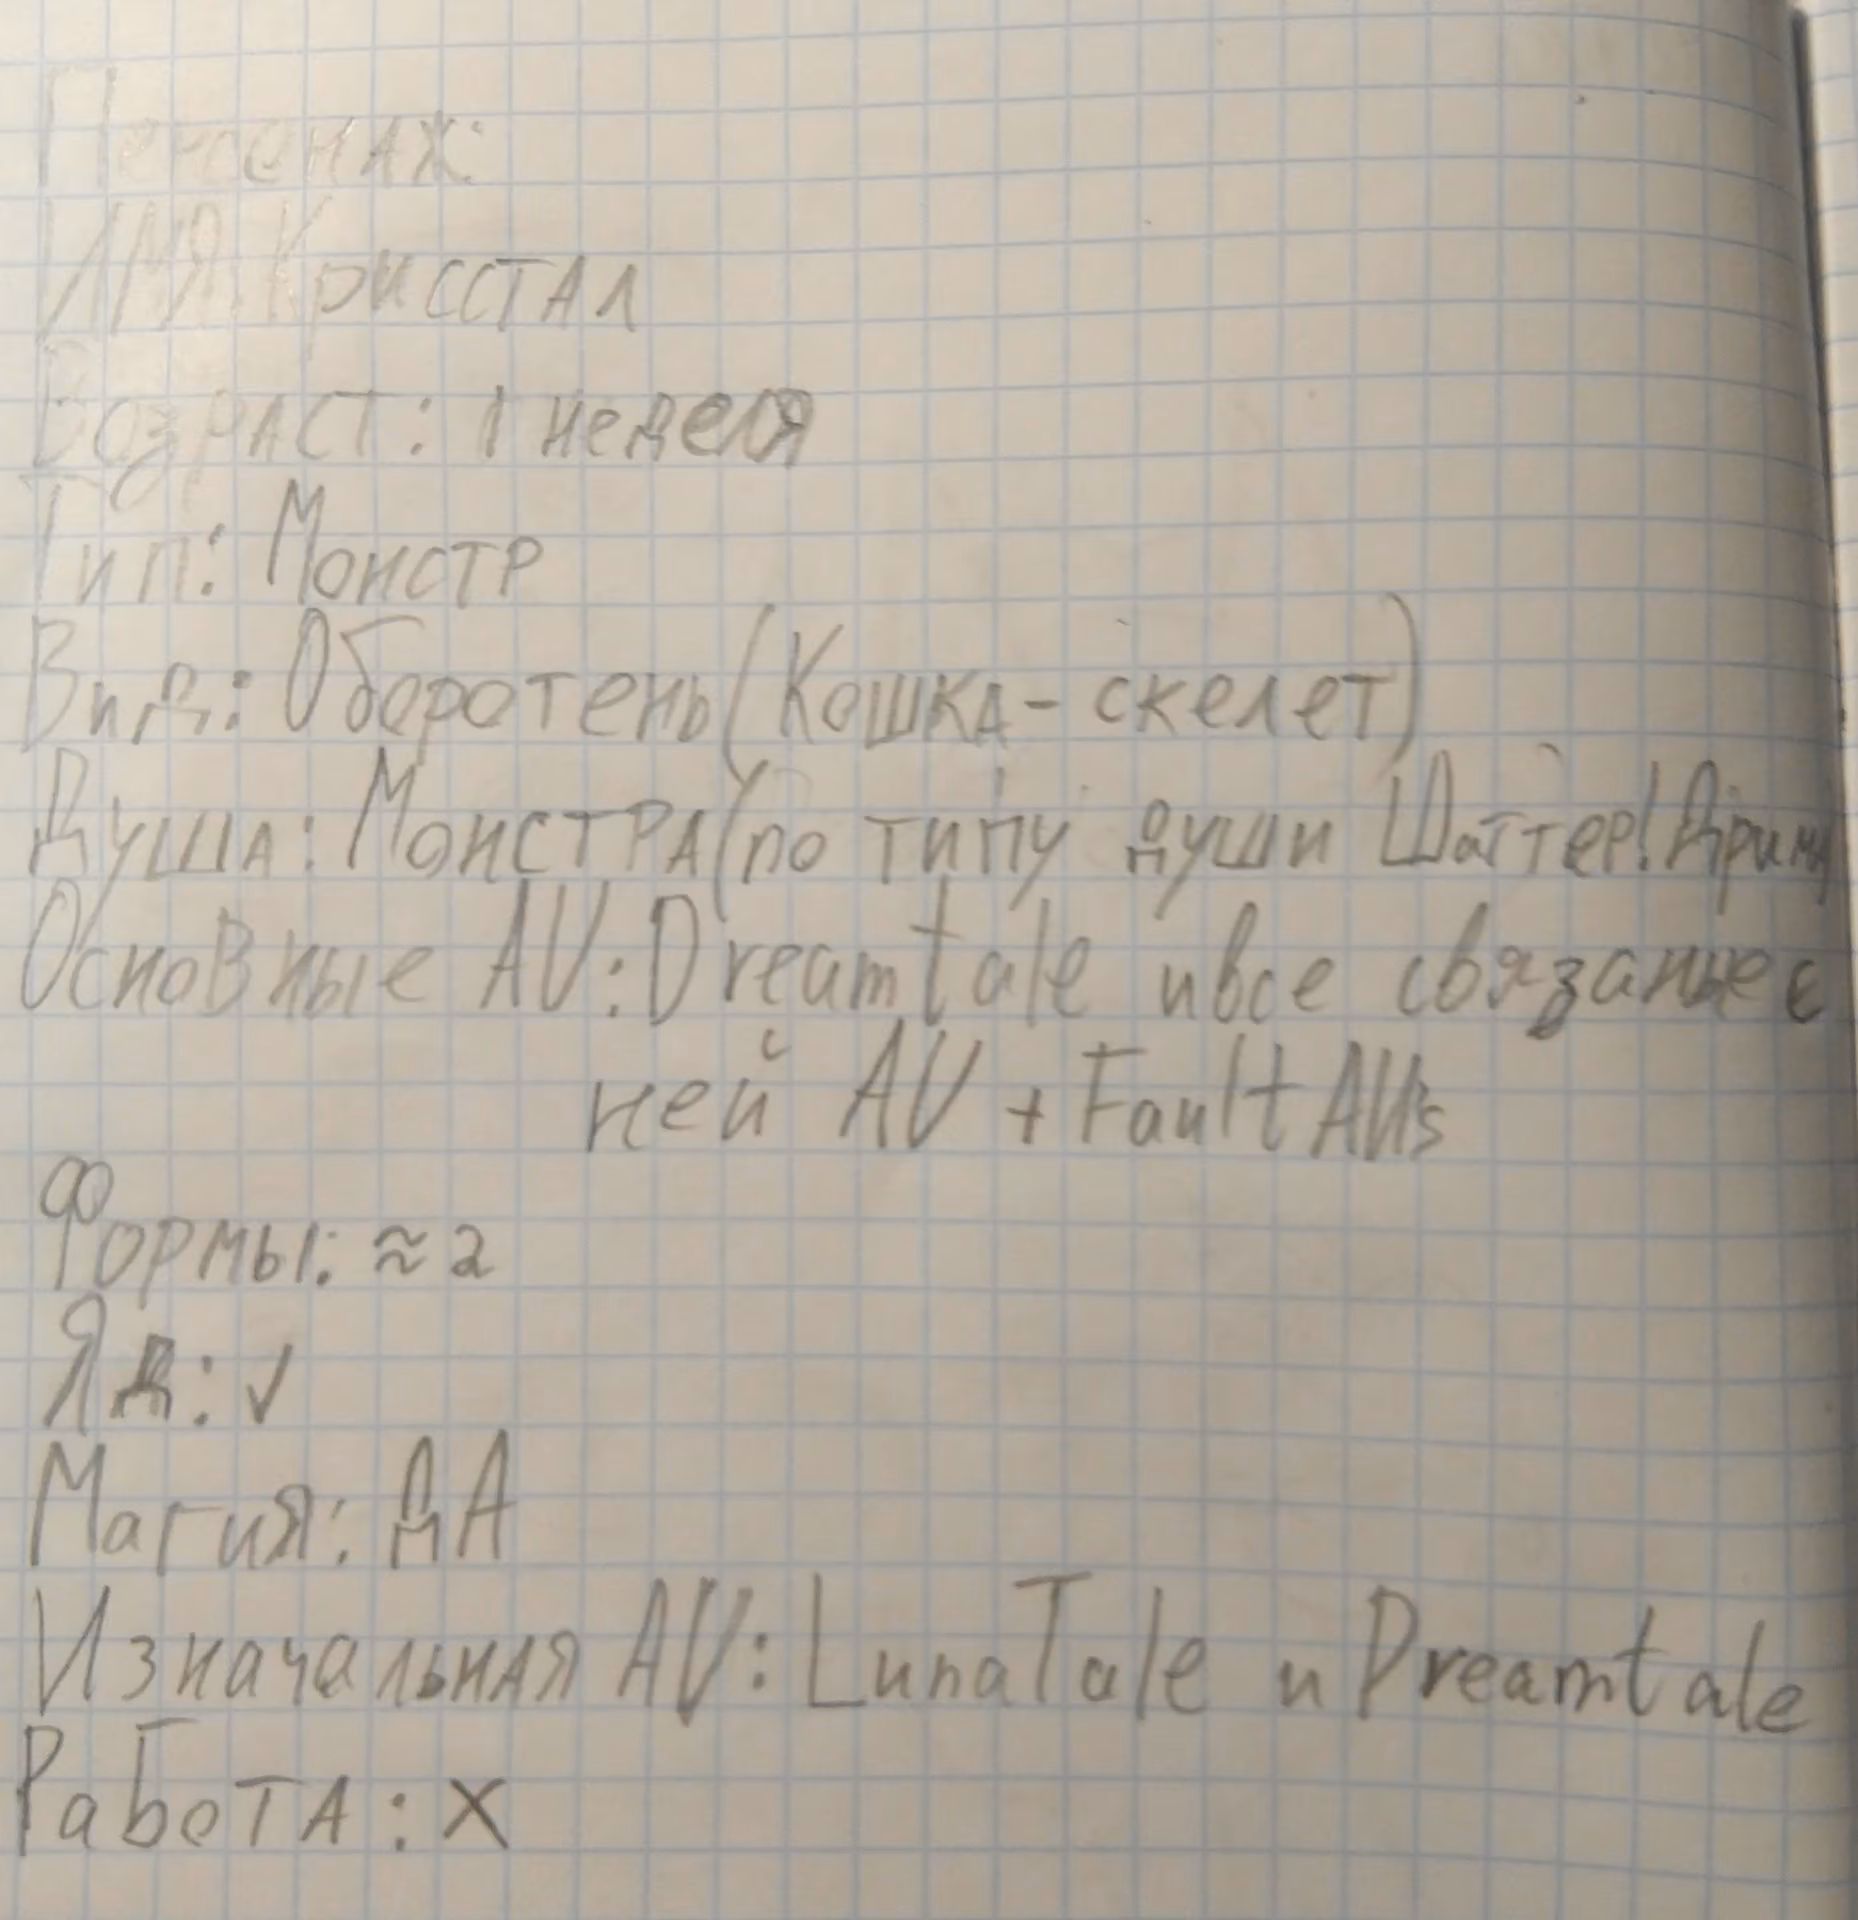 Персонаж:
Имя: Крисстал
Возраст: 1 неделя
Тип: Монстр
Вид: Оборотень (Кошка-скелет)
Душа: Монстра (по типу души Шаттер!Дрима)
Основные AU: Dreamtale и все связаные с
ней AU + Fault AU's
Формы: ≈2
Яд: ✓
Магия: дА
Изначальная AU: LunaTale и Dreamtale
Работа: X